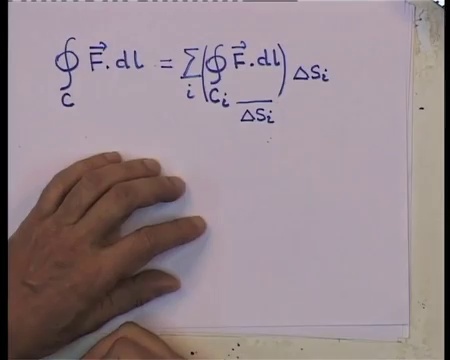 ∮_C F⃗.dl = ∑_i (∮_{C_i} F⃗.dl / ΔS_i) ΔS_i